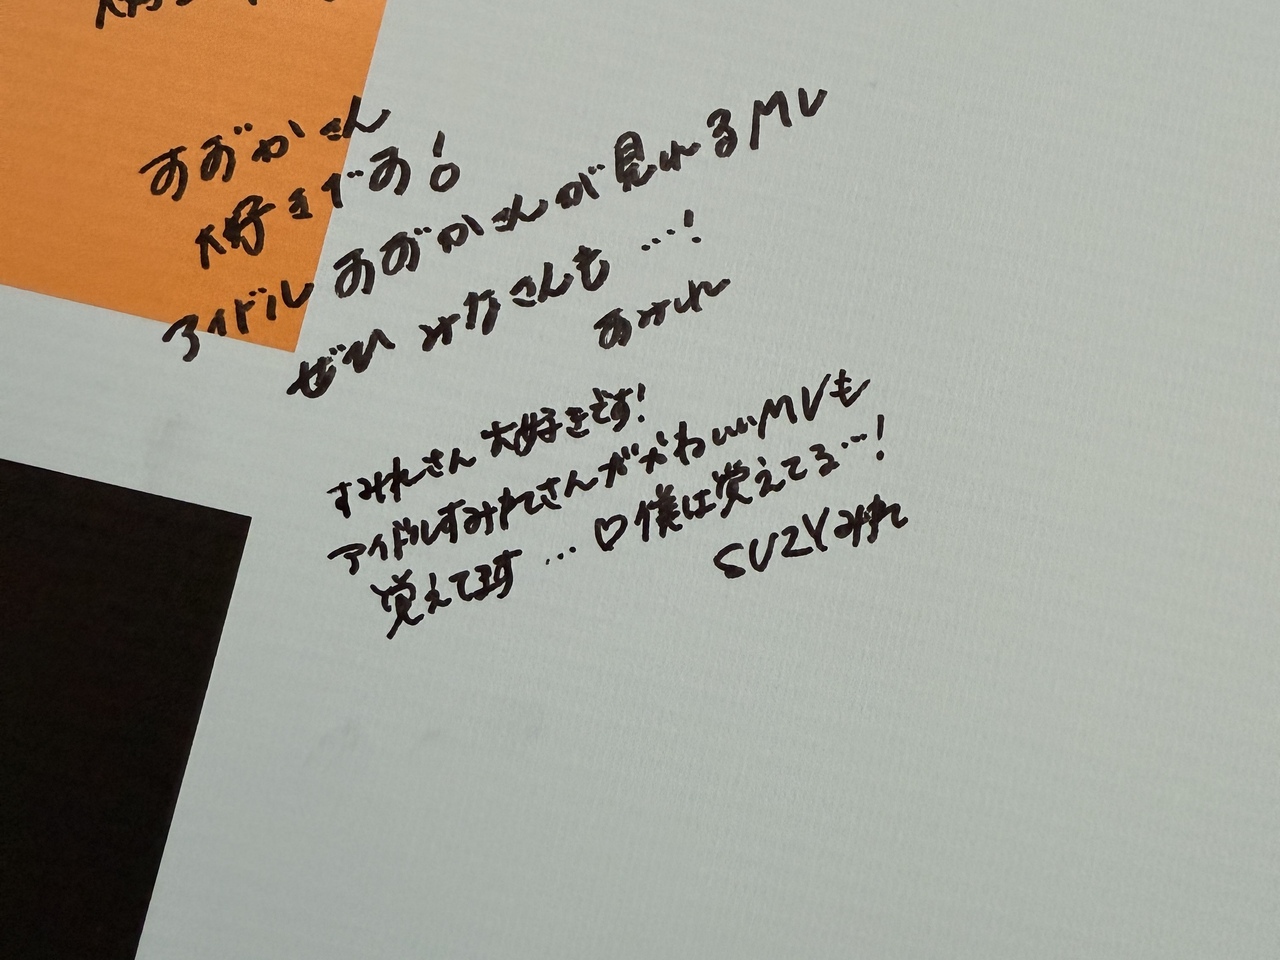 すずかさん
大好きです!
アイドルすずかさんが見れるMV
ぜひみなさんも…!
すみれ
すみれさん大好きです!
アイドルすみれさんがかわいいMVも
覚えてます…♡僕は覚えてる…!
SUZYみれ